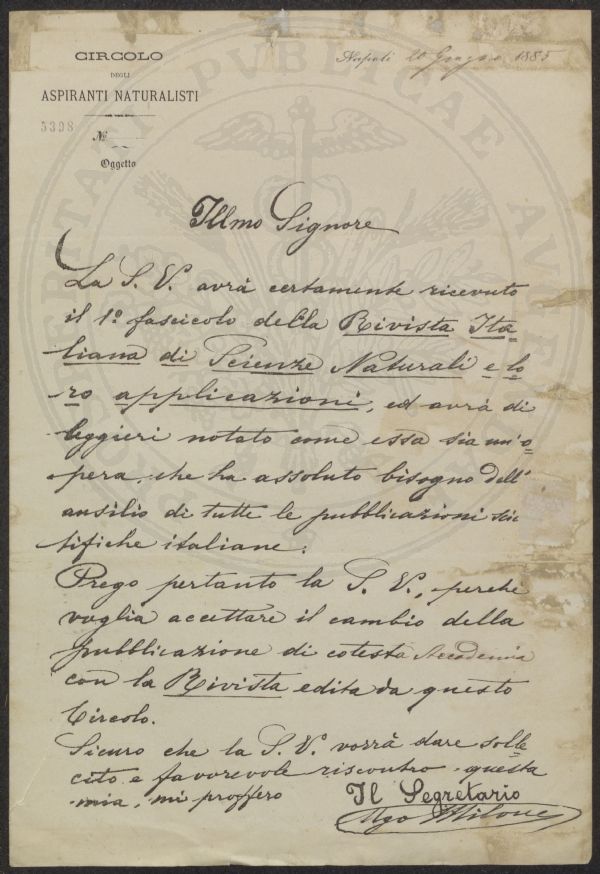 CIRCOLO
DEGLI
ASPIRANTI NATURALISTI
5398
No
Oggetto
Napoli 20 Giugno 1885
Illmo Signore
La S. V. avrà certamente ricevuto
il 1º fascicolo della Rivista Ita-
liana di Scienze Naturali e lo-
ro applicazioni, ed avrà di
leggieri notato come essa sia un'o-
pera, che ha assoluto bisogno dell'
ausilio di tutte le pubblicazioni scie
tifiche italiane.
Prego pertanto la S. V., perchè
voglia accettare il cambio della
pubblicazione di cotesta Accademia
con la Rivista edita da questo
Circolo.
Sicuro che la S. V. vorrà dare solle
cito e favorevole riscontro questa
mia, mi proffero
Il Segretario
Ugo Milone